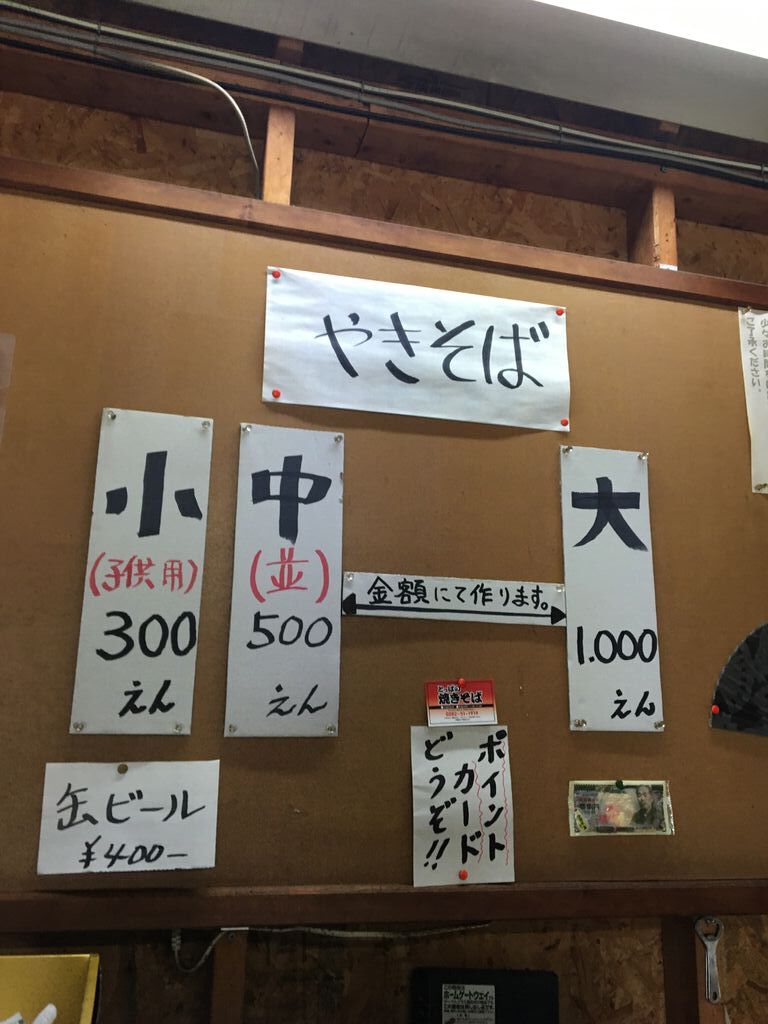 やきそば
小
(子供用)
300
えん
中
(並)
500
えん
金額にて作ります。
大
1.000
えん
焼きそば
ポイント
カード
どうぞ!!
缶ビール
¥400-
ご了承ください。
ホームゲートウェイ